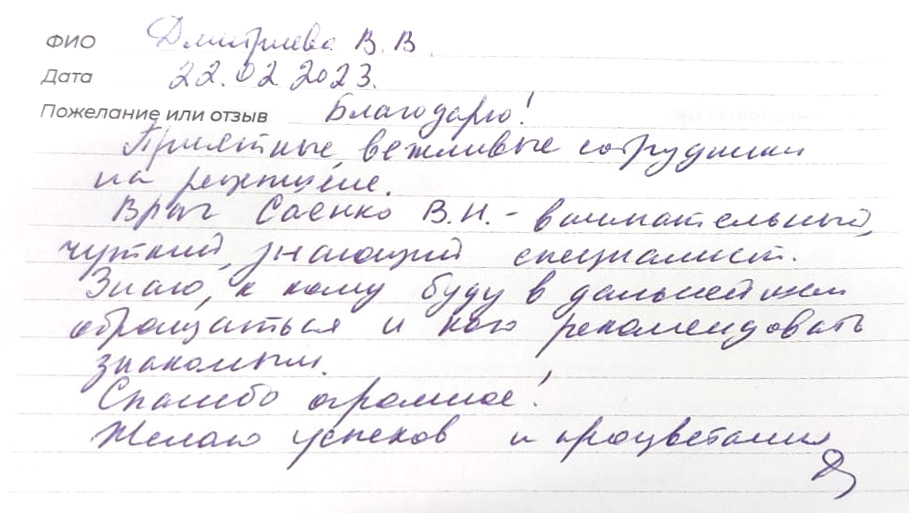 ФИО Дмитриева В. В.
Дата 22.02.2023.
Пожелание или отзыв Благодарю!
Приятные, вежливые сотрудники
на рецепшене.
Врач Саенко В.Н. - внимательный,
чуткий, знающий специалист.
Знаю, к кому буду в дальнейшем
обращаться и кого рекомендовать
знакомым.
Спасибо огромное!
Желаю успехов и процветания